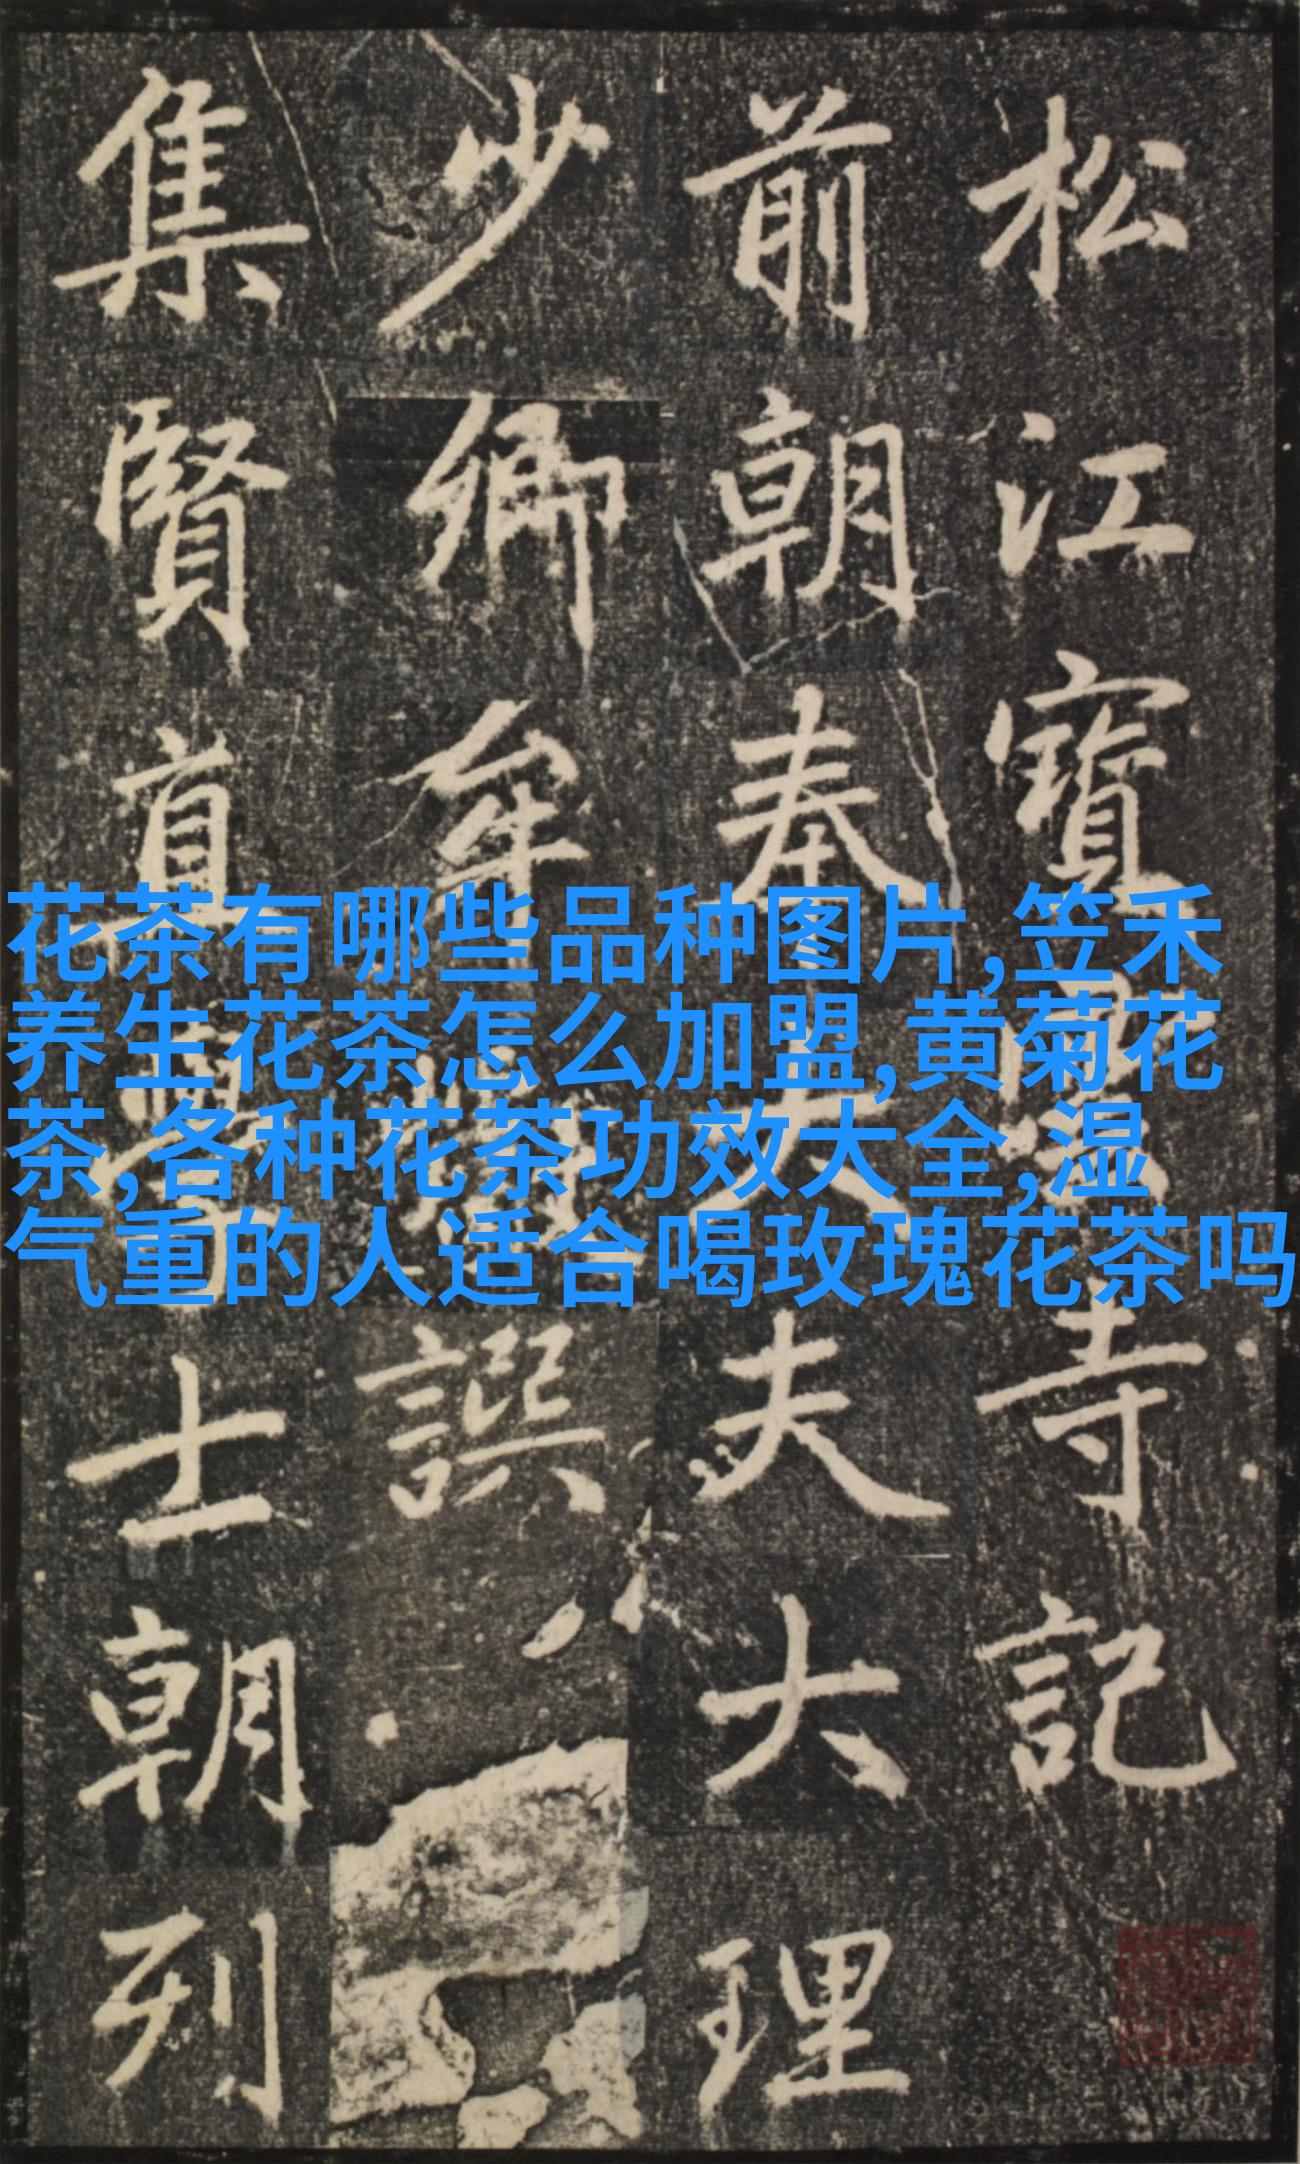 松江寶雲寺記
前朝奉大夫大理
少卿牟巘譔
集賢直學士朝列
花茶有哪些品种图片,笠禾
养生花茶怎么加盟,黄菊花
茶,各种花茶功效大全,湿
气重的人适合喝玫瑰花茶吗